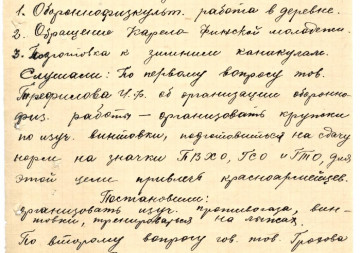 1. Обороннофизкульт. работа в деревне.
2. Обращение Карело Финской молодежи.
3. Подготовка к зимним каникулам.
Слушали: По первому вопросу тов.
Трефилова И.Ф. об организации оборонно-
физ. работы — организовать кружки
по изуч. винтовки, подготовиться на сдачу
норм на значки ПВХО, ГСО и ГТО, для
этой цели привлечь красноармейцев.
Постановили:
организовать изуч. противогаза, вин-
товки, тренироваться на лыжах.
По второму вопросу гов. тов. Грохова